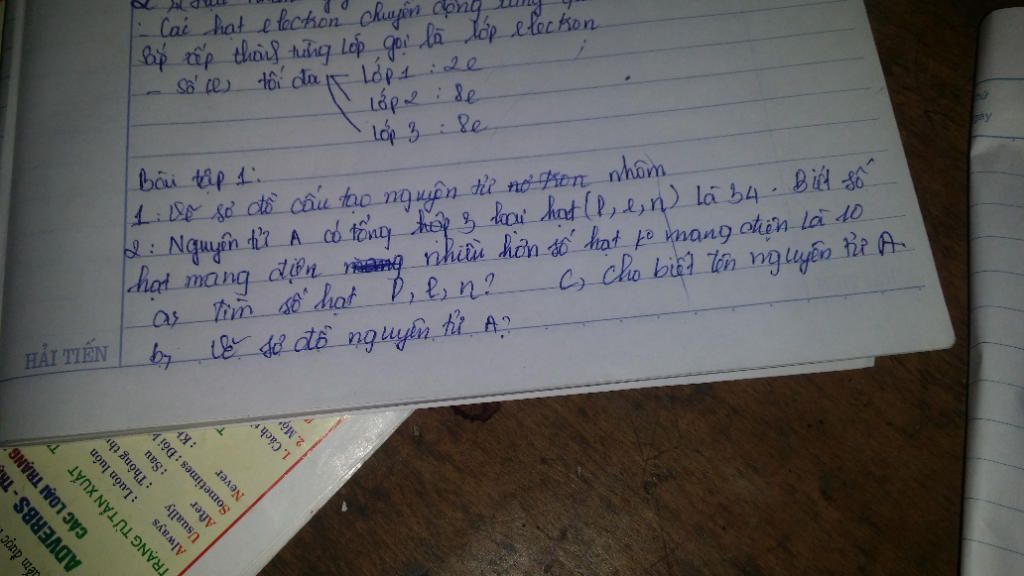 - Các hạt electron chuyển động
Sắp xếp thành từng lớp gọi là lớp electron
- Số (e) tối đa lớp 1 : 2e
lớp 2 : 8e
lớp 3 : 8e
Bài tập 1:
1: Vẽ sơ đồ cấu tạo nguyên tử nhôm
2: Nguyên tử A có tổng hợp 3 loại hạt (p, e, n) là 34. Biết số
hạt mang điện nhiều hơn số hạt ko mang điện là 10
a, Tìm số hạt p, e, n? c, cho biết tên nguyên tử A.
b, Vẽ sơ đồ nguyên tử A?
HẢI TIẾN
ADVERBS
CÁC LOẠI TRẠNG
TRẠNG TỪ TẦN XUẤT
Always : Luôn luôn
Usually : Thông th
After : Sau
Sometimes : Đôi
Never : Kh
1. Cách